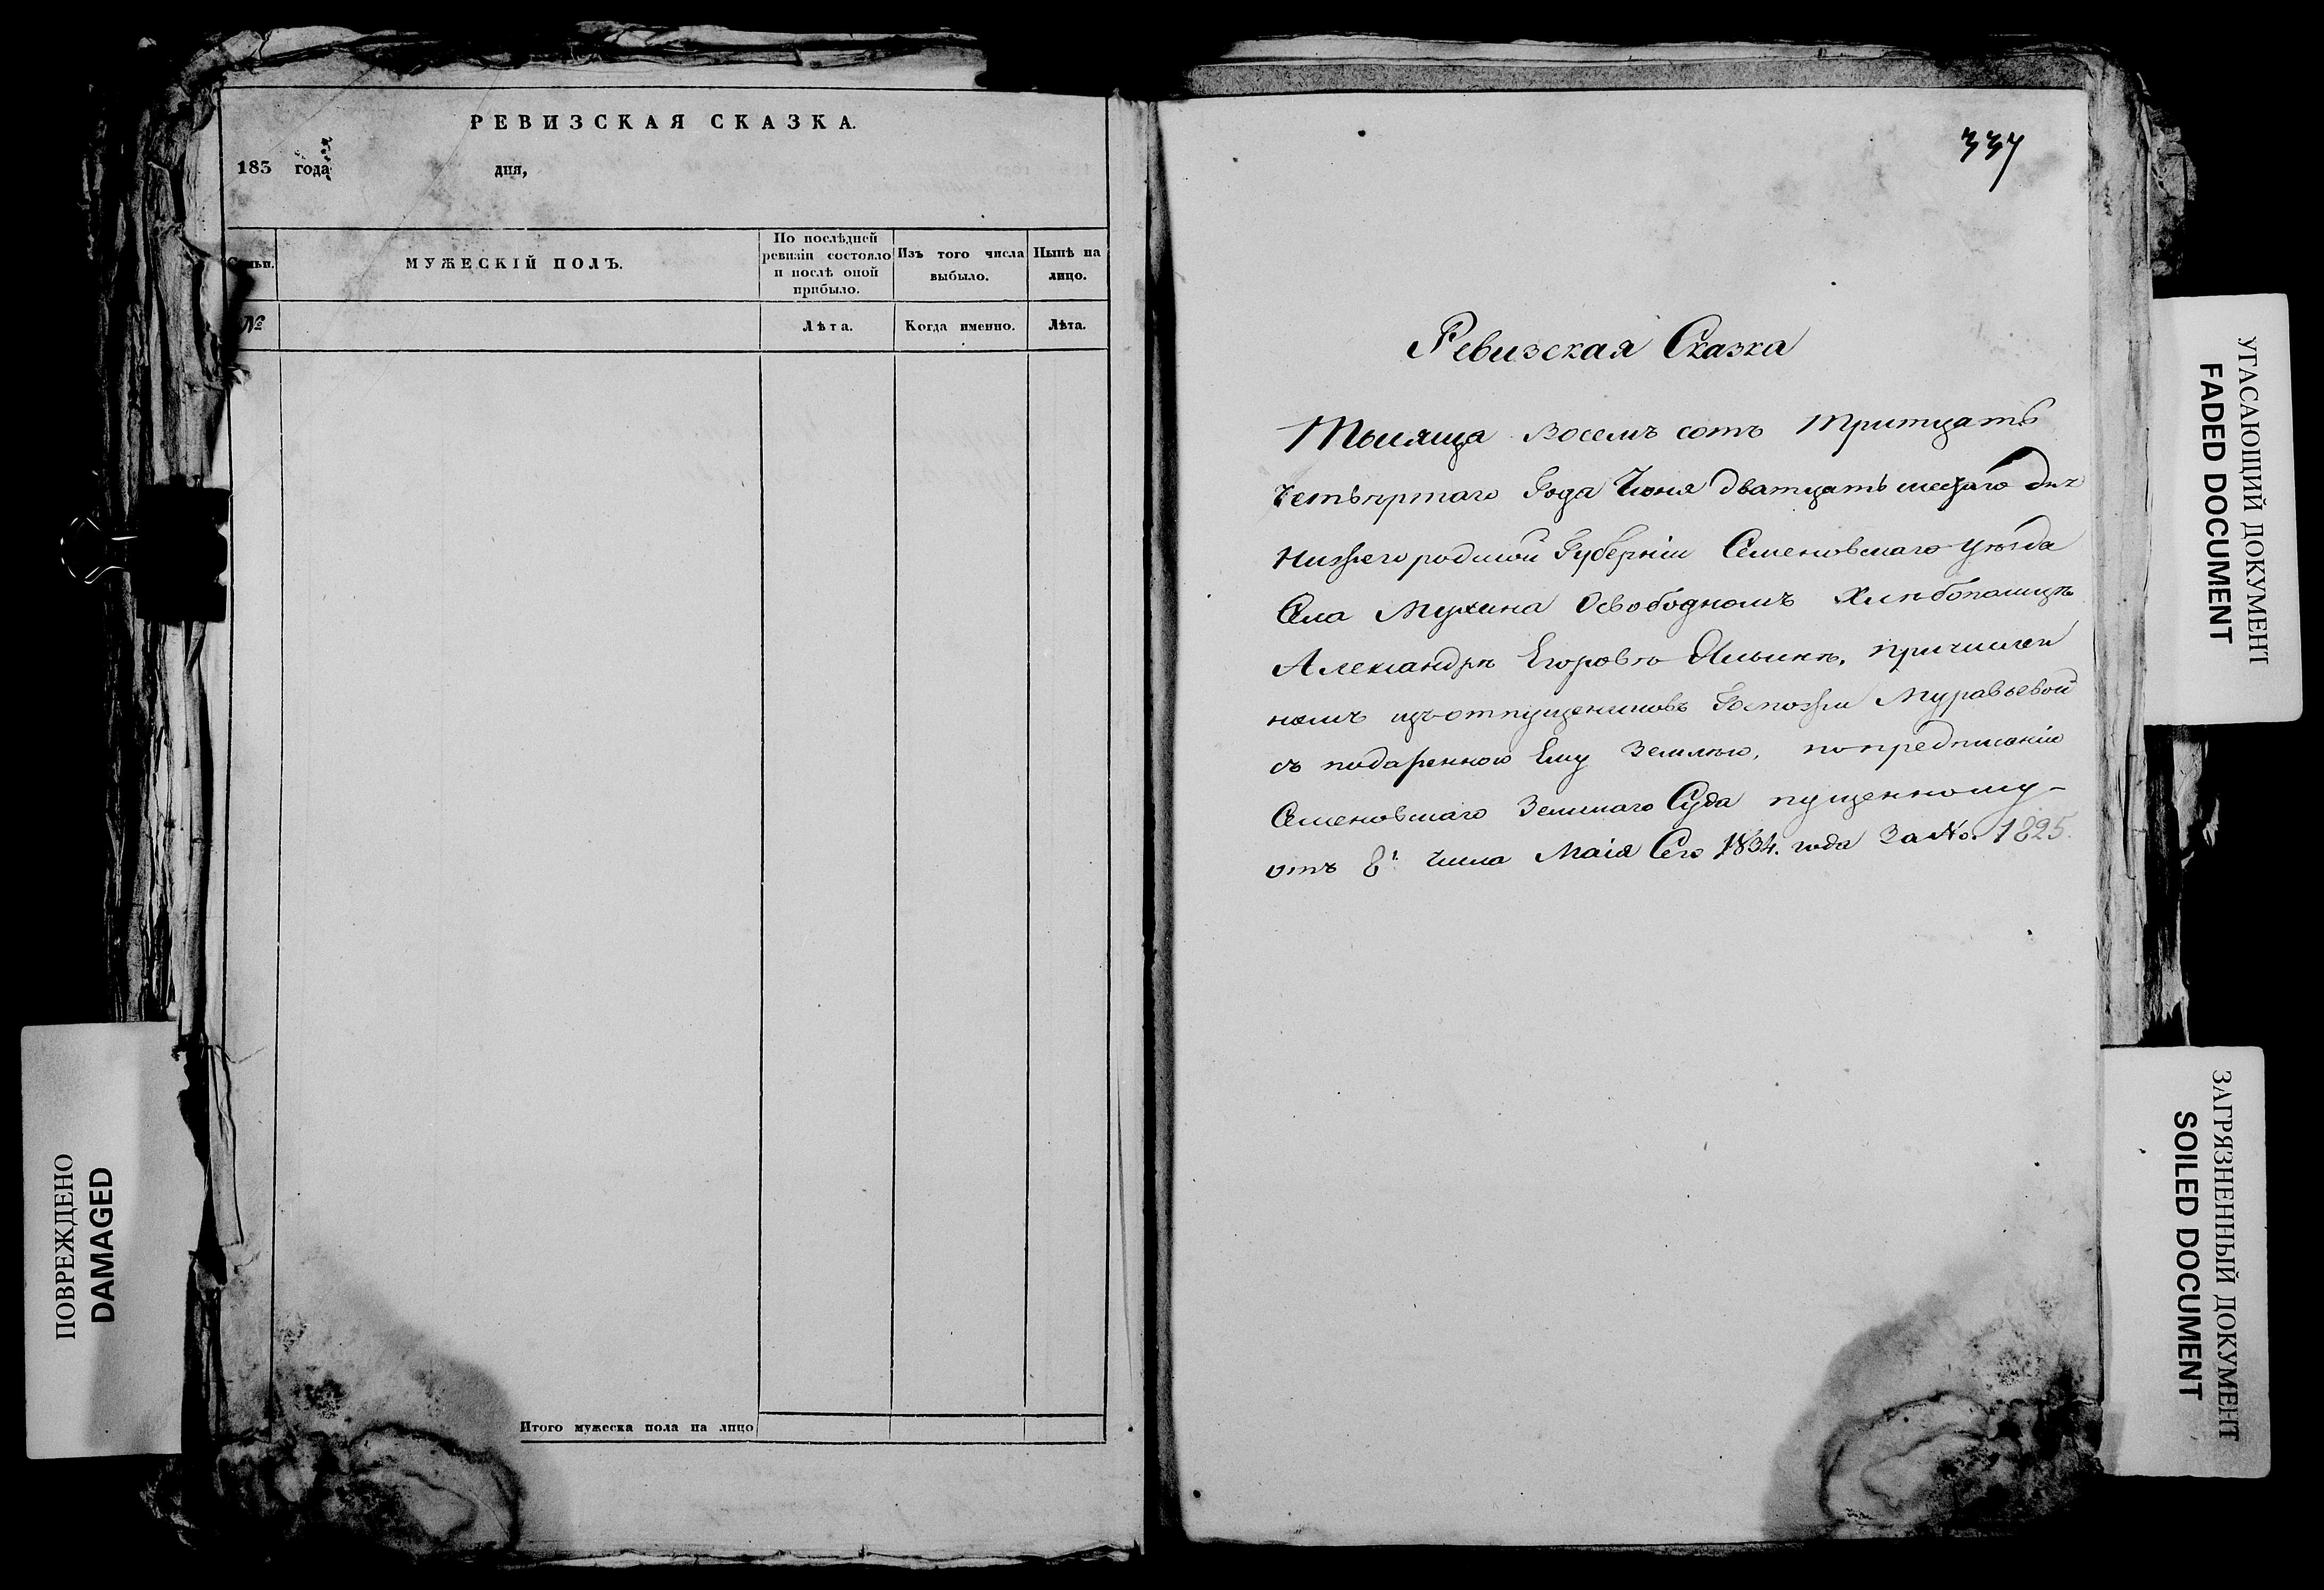 РЕВИЗСКАЯ СКАЗКА.
183 года дня,
МУЖЕСКІЙ ПОЛЪ.
По послѣдней
ревизіи состояло
и послѣ оной
прибыло.
Изъ того числа
выбыло.
Нынѣ на
лицо.
№
Лѣта.
Когда именно.
Лѣта.
Итого мужеска пола на лицо
337
Ревизская Сказка
Тысяща Восемъ сотъ Тритцать
Четьвртаго Года Июня Дватцать шестаго дня
Нижегородской Губерніи Семеновскаго уѣзда
Села Мухина О свободномъ Хлѣбопашцѣ
Александрѣ Егоровѣ Ильинѣ, причислен
номъ изъ отпущениковъ Госпожи Муравьевой
съ подаренною Ему Землѣю, по предписанію
Семеновскаго Земскаго Суда пущенному
отъ 8г. Числа Маія Сего 1834. года За No. 1825.
ПОВРЕЖДЕНО
DAMAGED
УГАСАЮЩИЙ ДОКУМЕНТ
FADED DOCUMENT
ЗАГРЯЗНЕННЫЙ ДОКУМЕНТ
SOILED DOCUMENT